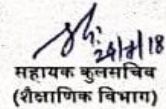 24/8/18
सहायक कुलसचिव
(शैक्षाणिक विभाग)